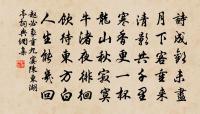 詩成歡未盡
月下客重來
清影共千里
寒香更一杯
龍山秋寂寞
牛渚夜徘徊
飲待東方白
人生能幾回
趙必象重九宴陳東湖